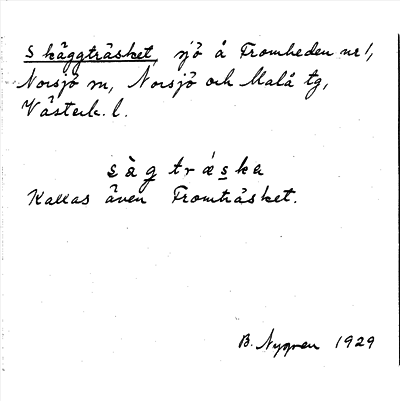 Skäggträsket, sjö å Fromheden nr 1,
Norsjö sn, Norsjö och Malå tg,
Västerb. l.
sàgtráska
Kallas även Fromträsket.
B. Nygren 1929